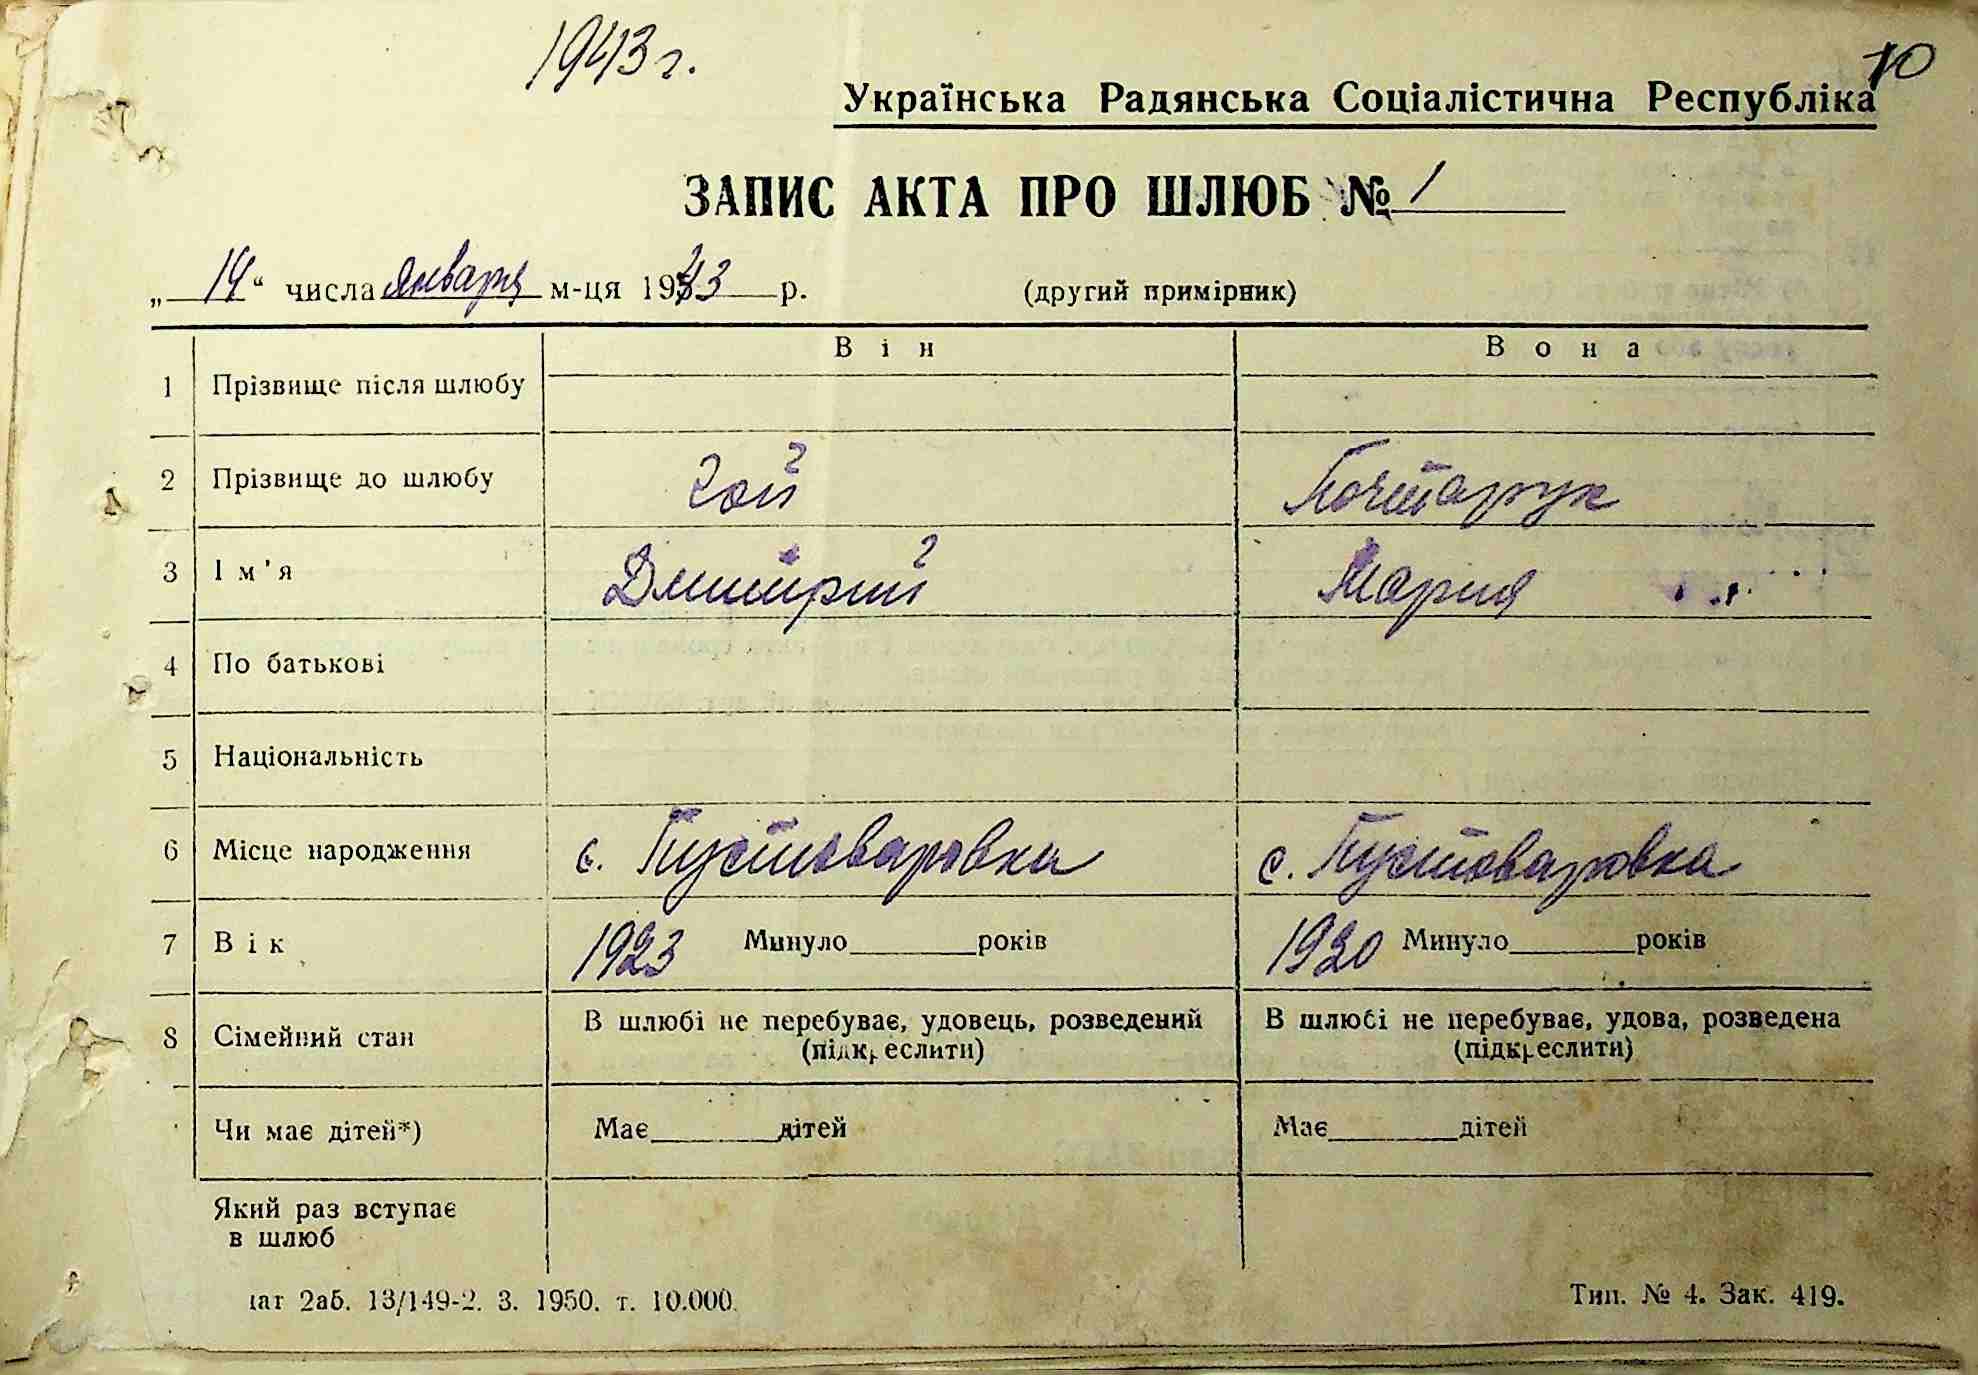 1943 г.
10
Українська Радянська Соціалістична Республіка
ЗАПИС АКТА ПРО ШЛЮБ № 1
„ 14 “ числа января м-ця 1943 р. (другий примірник)
Він Вона
1 Прізвище після шлюбу
2 Прізвище до шлюбу Гой Почтарук
3 Ім'я Дмитрий Мария
4 По батькові
5 Національність
6 Місце народження с. Пустоваровка с. Пустоваровка
7 Вік 1923 Минуло років 1920 Минуло років
8 Сімейний стан В шлюбі не перебуває, удовець, розведений (підкреслити) В шлюбі не перебуває, удова, розведена (підкреслити)
Чи має дітей*) Має дітей Має дітей
Який раз вступає
в шлюб
2аб. 13/149-2. 3. 1950. т. 10.000. Тип. № 4. Зак. 419.